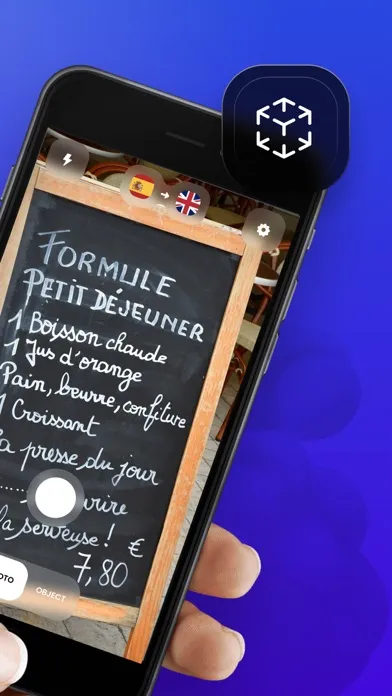 FORMULE
PETIT DÉJEUNER
1 Boisson chaude
1 Jus d'orange
Pain, beurre, confiture
1 Croissant
la presse du jour
la serveuse ! €
7,80
OBJECT